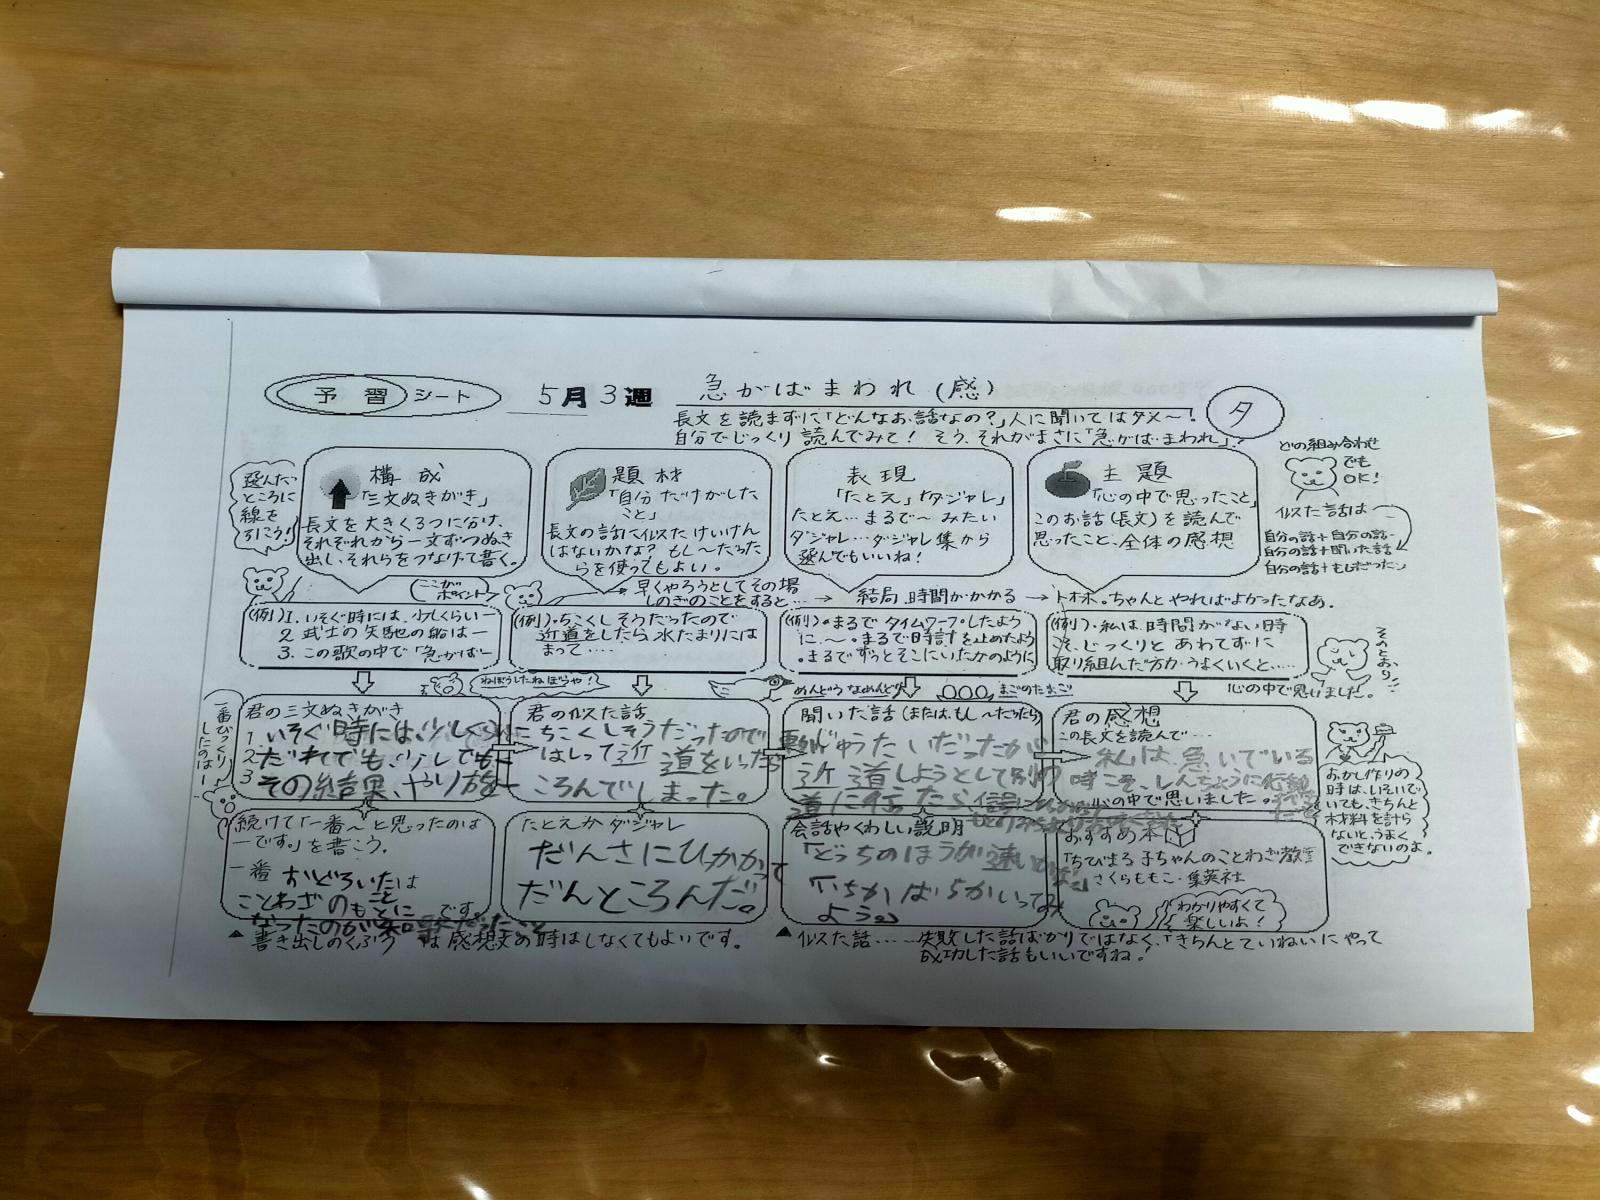 予習シート 5月3週 急がばまわれ(感) タ
長文を読まずに「どんなお話なの?」人に聞いてはダメ〜!
自分でじっくり読んでみて! そう、それがまさに「急がばまわれ」!
選んだ
ところに
線を
引こう!
構成
「三文ぬきがき」
長文を大きく3つに分け、
それぞれから一文ずつぬき
出し、それらをつなげて書く。
題材
「自分だけがした
こと」
長文の話に似たけいけん
はないかな? もし〜だった
らを使ってもよい。
表現
「たとえ」「ダジャレ」
たとえ…まるで〜みたい
ダジャレ…ダジャレ集から
選んでもいいね!
主題
「心の中で思ったこと」
このお話(長文)を読んで
思ったこと、全体の感想
どの組み合わせ
でも
OK!
似た話は
自分の話+自分の話
自分の話+聞いた話
自分の話+もしだったら
ここが
ポイント
早くやろうとしてその場
しのぎのことをすると… → 結局、時間がかかる → トホホ。ちゃんとやればよかったなあ。
(例)1. いそぐ時には、少しくらいー
2. 武士の矢馳の船はー
3. この歌の中で「急がばー
(例)・ちこくしそうだったので
近道をしたら水たまりには
まって……
(例)・まるでタイムワープしたよう
に、〜。・まるで時計を止めたよう
・まるでずっとそこにいたかのように
(例)・私は、時間がない時こ
そ、じっくりとあわてずに
取り組んだ方がうまくいくと……
心の中で思いました。
そのとおり
ねぼうしたねぼうや!
めんどうなめんどり
まごのたまご
一番びっくり
したのはー
君の三文ぬきがき
1 いそぐ時には、少しくらい
2 だれでも、少しでも
3 その結果、やり方
君の似た話
ちこくしそうだったので
はしって近道をいったら
ころんでしまった。
聞いた話(または、もし〜だったら)
じゅうたいだったから
近道しようとして別の
道に行ったら、信号に
君の感想
この長文を読んで…
私は、急いでいる
時こそ、しんちょうに行動
心の中で思いました。
おかし作りの
時は、いそいで
いても、きちんと
材料を計ら
ないと、うまく
できないのよ。
続けて「一番〜と思ったのは
ーです。」を書こう。
一番 おどろいたことは
ことわざのもとに です。
なったのが和歌だったこと
たとえかダジャレ
だんさにひっかかって
だんところんだ。
会話やくわしい説明
「どっちのほうが速いかな」
「いちかばちかいってみ
よう。」
おすすめ本
「ちびまる子ちゃんのことわざ教室」
さくらももこ・集英社
わかりやすくて
楽しいよ!
▲書き出しのくふうは感想文の時はしなくてもよいです。
▲似た話……失敗した話ばかりではなく、「きちんとていねいにやって
成功した話もいいですね!